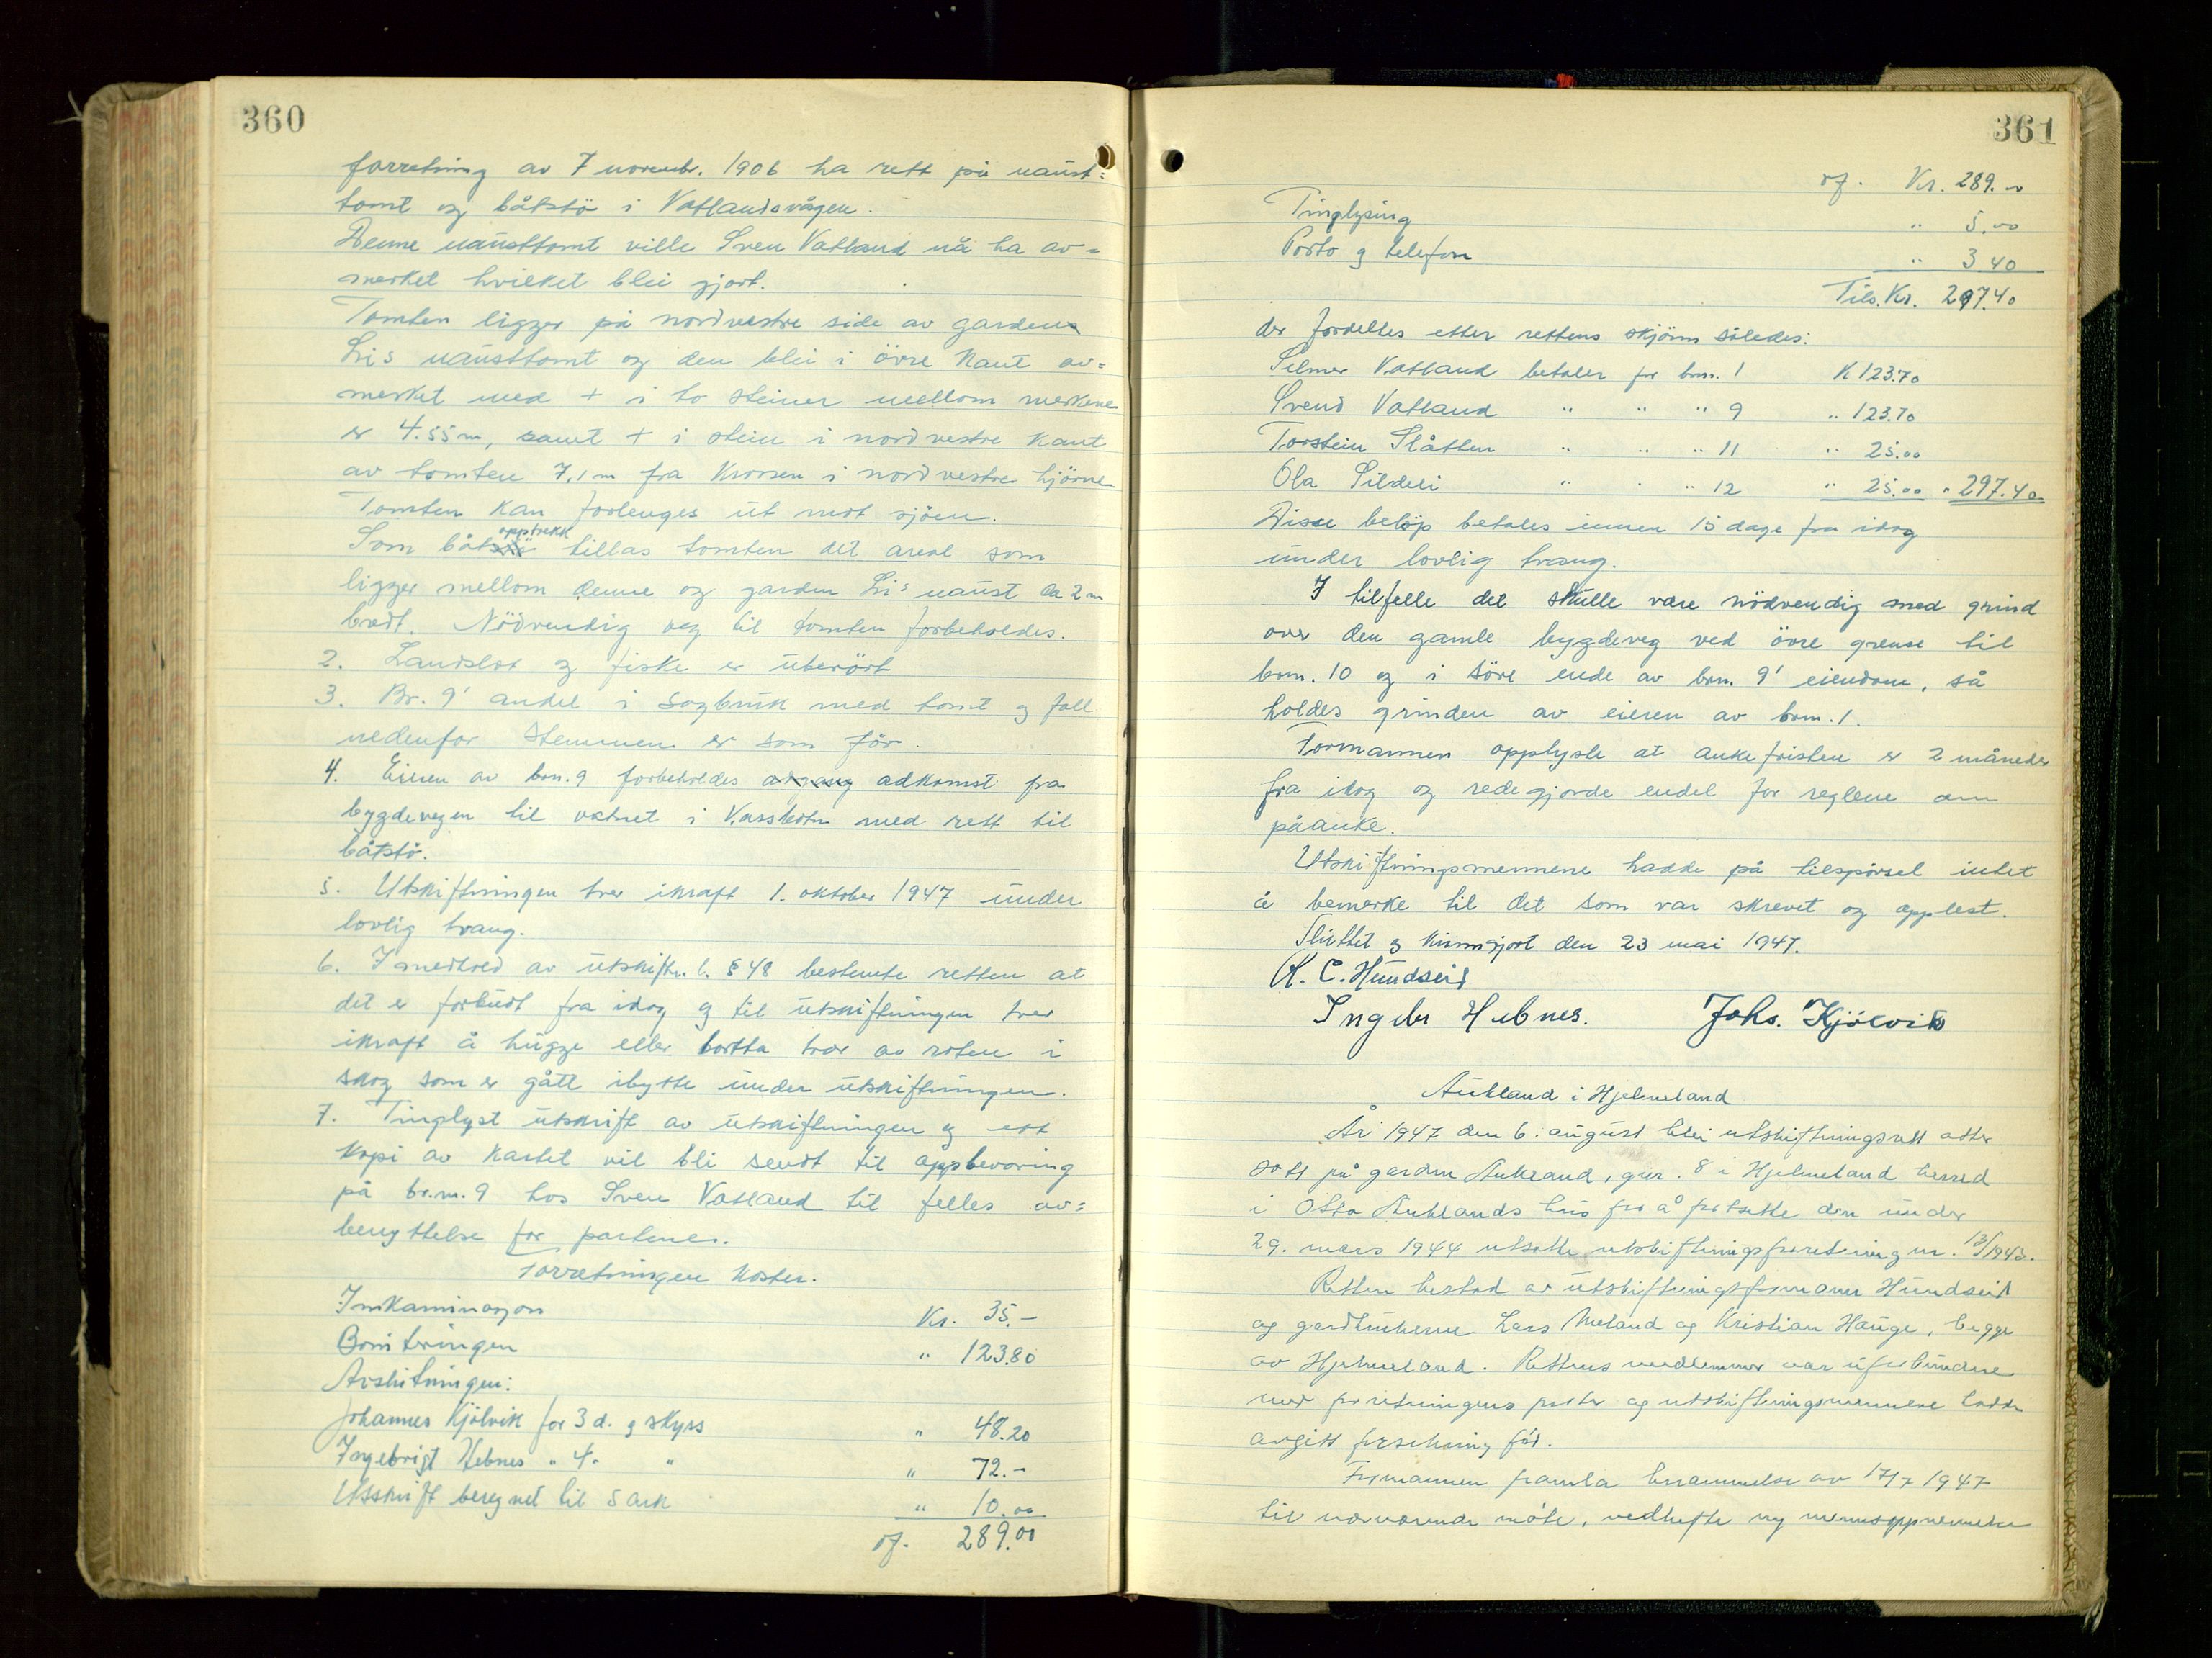 360
forretning av 7 novembr. 1906 ha rett på naust=
tomt og båtstö i Vatlandsvågen.
Denne nausttomt ville Sven Vatland nå ha av=
merket hvilket blei gjort.
Tomten ligger på nordvestre side av gardens
Li's nausttomt og den blei i övre kant av=
merket med + i to steiner mellom merkene
er 4.55 m, samt + i stein i nordvestre kant
av tomten 7,1 m fra krossen i nordvestre hjörne
Tomten kan forlenges ut mot sjöen.
Som båtopptrekk tillas tomten det areal som
ligger mellom denne og garden Li's naust ca 2 m
bredt. Nödvendig veg til tomten forbeholdes.
2. Landslot og fiske er uberört
3. Br. 9' andel i sagbruk med tomt og fall
nedenfor stemmen er som för.
4. Eieren av brn. 9 forbeholdes adgang adkomst fra
bygdevegen til vatnet i Vassbotn med rett til
båtstö.
5. Utskiftningen trer ikraft 1. oktober 1947 under
lovlig tvang.
6. I medhold av utskiftn.l. § 48 bestemte retten at
det er forbudt fra idag og til utskiftningen trer
ikraft å hugge eller bortta trær av roten i
skog som er gått ibytte under utskiftningen.
7. Tinglyst utskrift av utskiftningen og ett
kopi av kartet vil bli sendt til oppbevaring
på br.nr. 9 hos Sven Vatland til felles av=
benyttelse for partene.
Forretningen koster.
Innkaminasjon Kr. 35.-
Boniteringen " 123.80
Avskiltningen:
Johannes Kjölvik for 3 d. og skyss " 48.20
Ingebrigt Hebnes " 4. " " 72.-
Utskrift beregnet til 5 ark " 10.00
of. 289.00
361
of. Kr. 289.00
Tinglysing " 5.00
Porto og telefon " 3.40
Tils. Kr. 297.40
der fordelles etter rettens skjönn således:
Selmer Vatland betaler for brn. 1 K 123.70
Svend Vatland " " " 9 " 123.70
Torstein Slåtten " " " 11 " 25.00
Ola Sildeli " " " 12 " 25.00 " 297.40
Disse belöp betales innen 15 dage fra idag
under lovlig tvang.
I tilfelle det skulle være nödvendig med grind
over den gamle bygdeveg ved övre grense til
brn. 10 og i söre ende av brn. 9' eiendom, så
holdes grinden av eieren av brn. 1.
Formannen opplyste at ankefristen er 2 måneder
fra idag og redegjorde endel for reglene om
påanke.
Utskiftningsmennene hadde på tilspörsel intet
å bemerke til det som var skrevet og opplest.
Sluttet og kunngjort den 23 mai 1947.
K. C. Hundseid
Ingebr Hebnes. Johs. Kjölvik
Aukland i Hjelmeland
År 1947 den 6. august blei utskiftningsrett atter
satt på garden Aukland, gnr. 8 i Hjelmeland herred
i Otto Auklands hus for å fortsette den under
29. mars 1944 utsatte utskiftningsforretning nr. 13/1943.
Retten bestod av utskiftningsformann Hundseid
og gardbrukerne Lars Meland og Kristian Hauge, begge
av Hjelmeland. Rettens medlemmer var uforbundne
med forretningens parter og utskiftningsmennene hadde
avgitt forsikring för.
Formannen framla berammelse av 17/7 1947
til nærværende möte, vedhefte ny mennsoppnevnelse